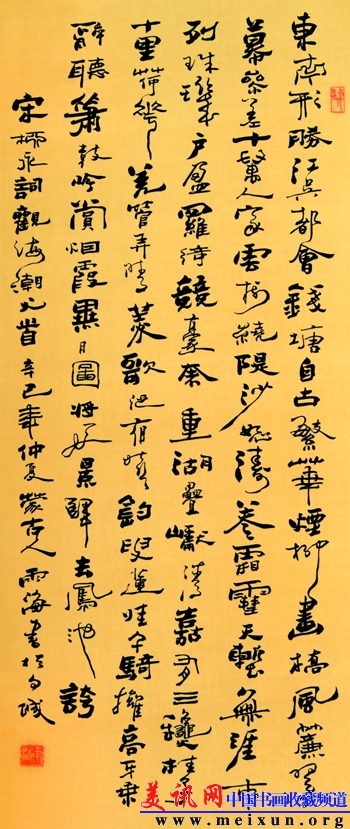 東南形勝江吳都會錢塘自古繁華煙柳畫橋風簾翠
幕參差十萬人家雲樹繞隄沙怒濤卷霜雪天塹無涯市
列珠璣戶盈羅綺競豪奢重湖疊巘清嘉有三龝桂子
十里荷花羌管弄晴菱歌泛夜嬉嬉釣叟蓮娃千騎擁高牙乘
醉聽簫鼓吟賞烟霞異日圖將好景歸去鳳池誇
宋柳永詞觀海潮首辛巳年仲夏蒙古人雨海書於白城
美讯网 中国书画收藏频道
www.meixun.org